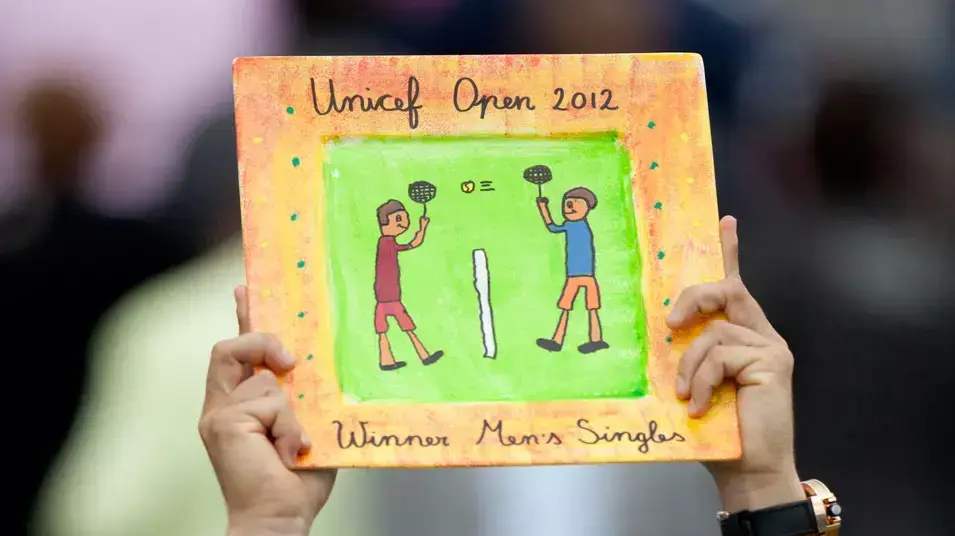 Unicef Open 2012
Winner Men's Singles